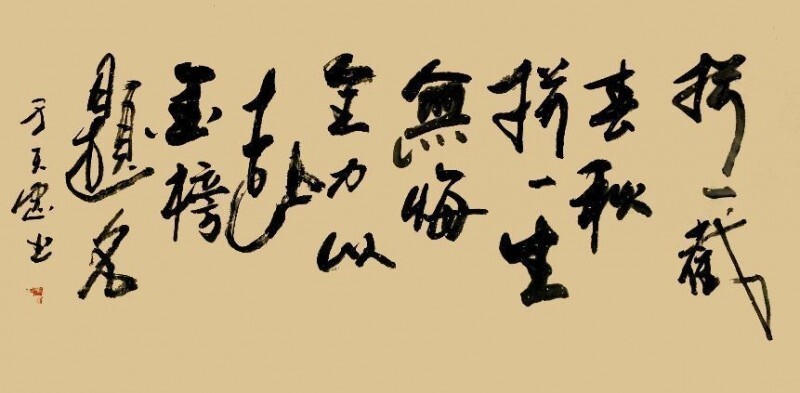 拼一截
春秋
拼一生
無悔
全力以
赴
金榜
題名
书